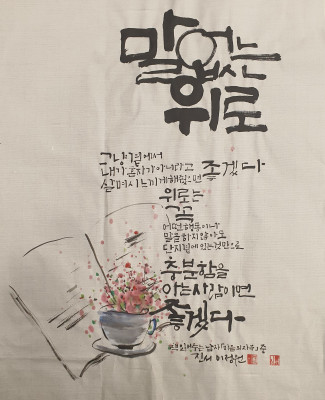 말없는
위로
그냥 곁에서
내가 혼자가 아니라고
살며시 느끼게 해줬으면
좋겠다
위로는
꼭
어떤 행동이나
말을 하지 않아도
단지 곁에 있는 것만으로
충분함을
아는 사람이면
좋겠다
중
진서 이정원